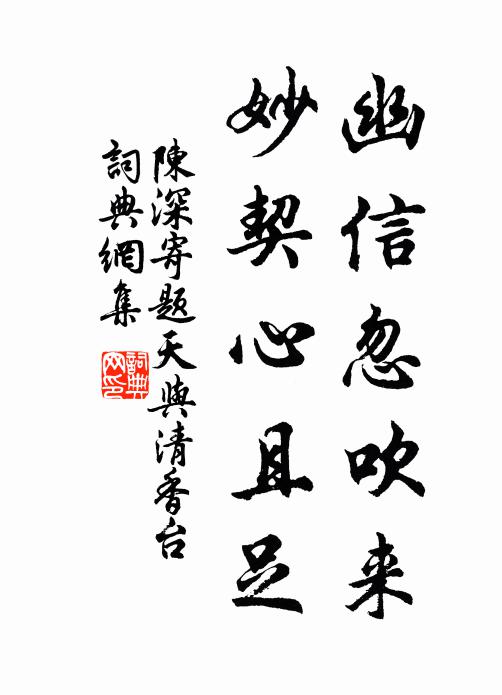 幽信忽吹来
妙契心且足
陳深寄题天與清香台
詞典網集
詞典网印